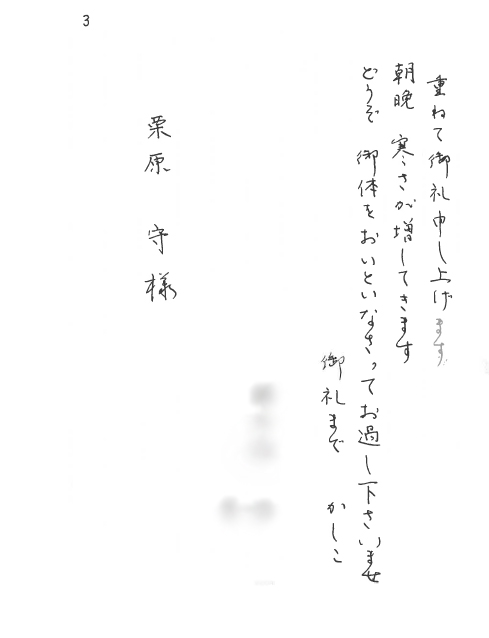 3
重ねて御礼申し上げます
朝晩 寒さが増してきます
どうぞ 御体をおいといなさってお過し下さいませ
御礼まで かしこ
栗原 守 様